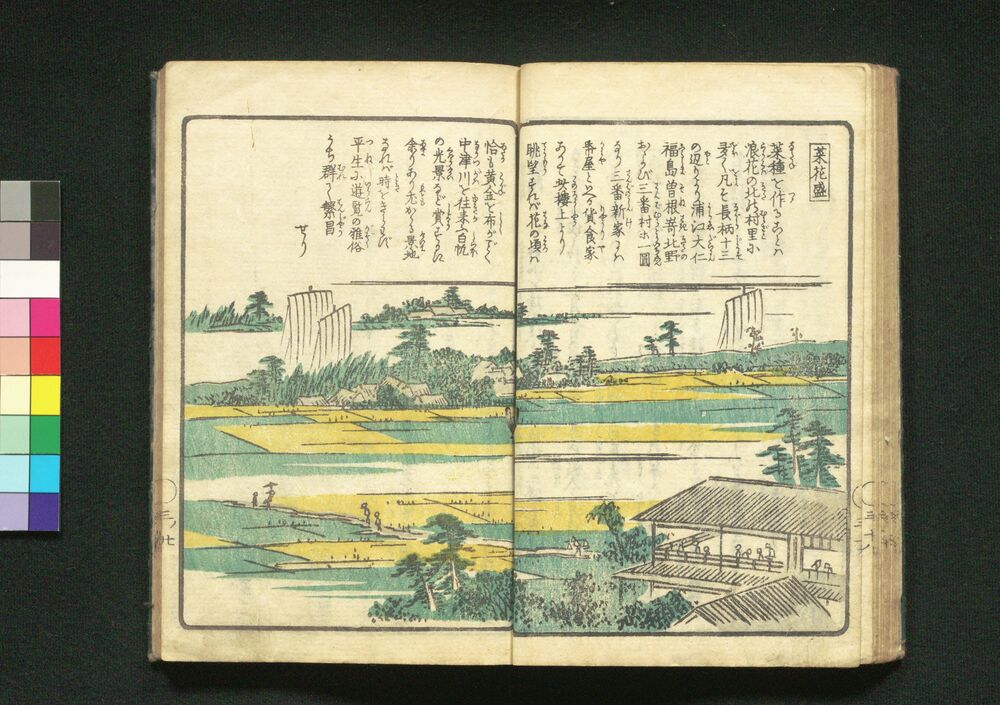 菜花盛
菜種を作ることハ
浪花の北の村里に
多く凡そ長柄十三
の辺りより浦江大仁
福島曽根嵜北野
および三番村ホ一圓
なり三番新家にハ
番屋といへる貨食家
ありて其楼上より
眺望すれバ花の頃ハ
恰も黄金を布がごとく
中津川を往来ふ百帆
の光景など賞するに
余りあり尤かゝる景地
なれバ時を
平生に遊覧の雅俗
うち群て繁昌
せり
三ノ七